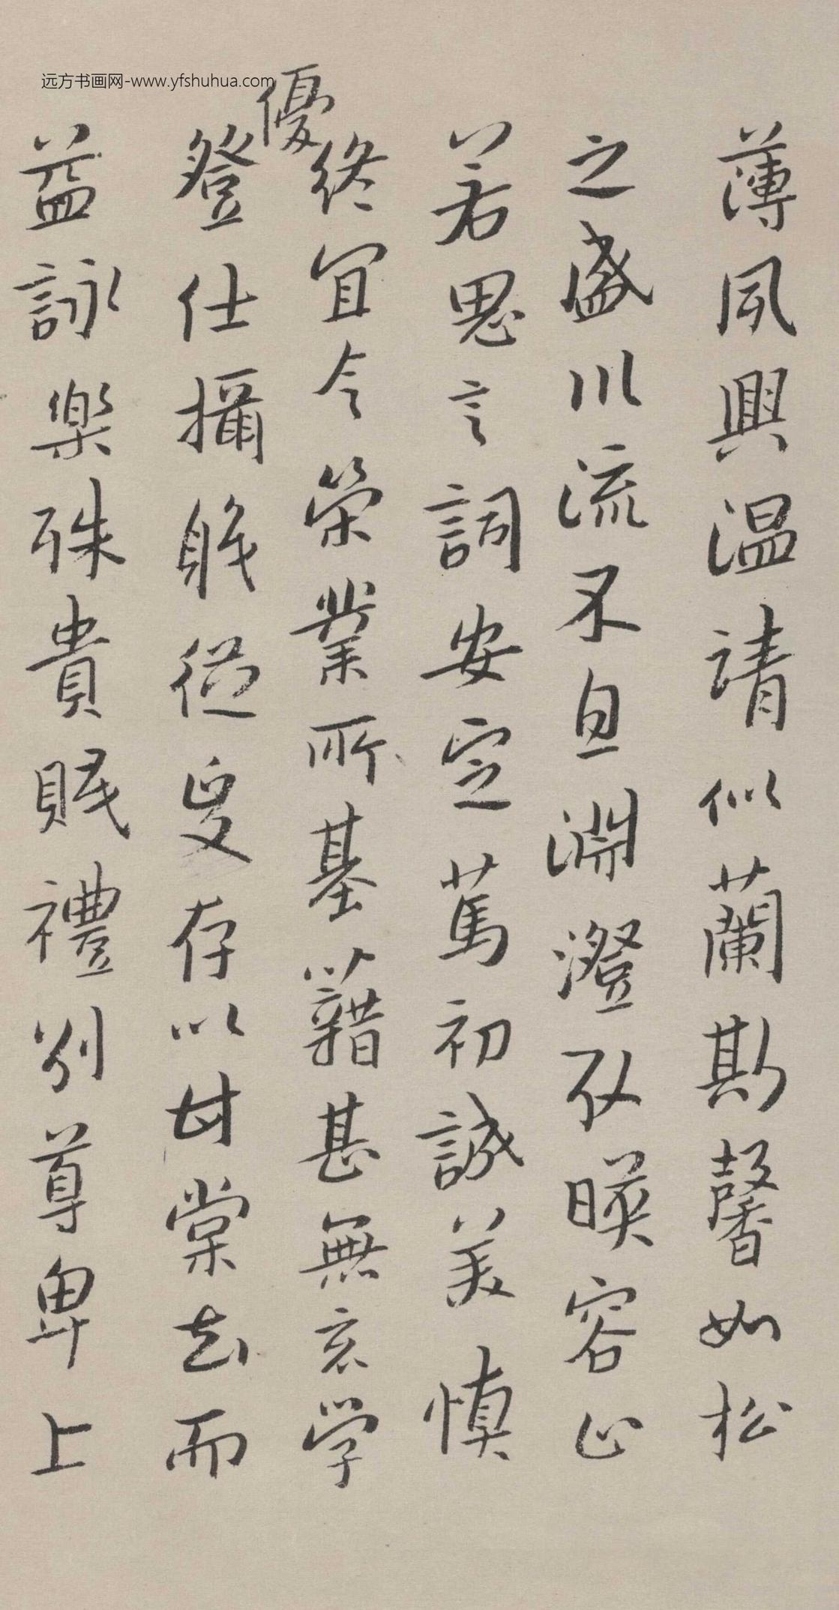 远方书画网-www.yfshuhua.com
薄夙興温清似蘭斯馨如松
之盛川流不息淵澄取暎容止
若思言詞安定篤初誠美慎
終宜令榮業所基藉甚無竟学
優
登仕攝職從政存以甘棠去而
益詠樂殊貴賤禮別尊卑上